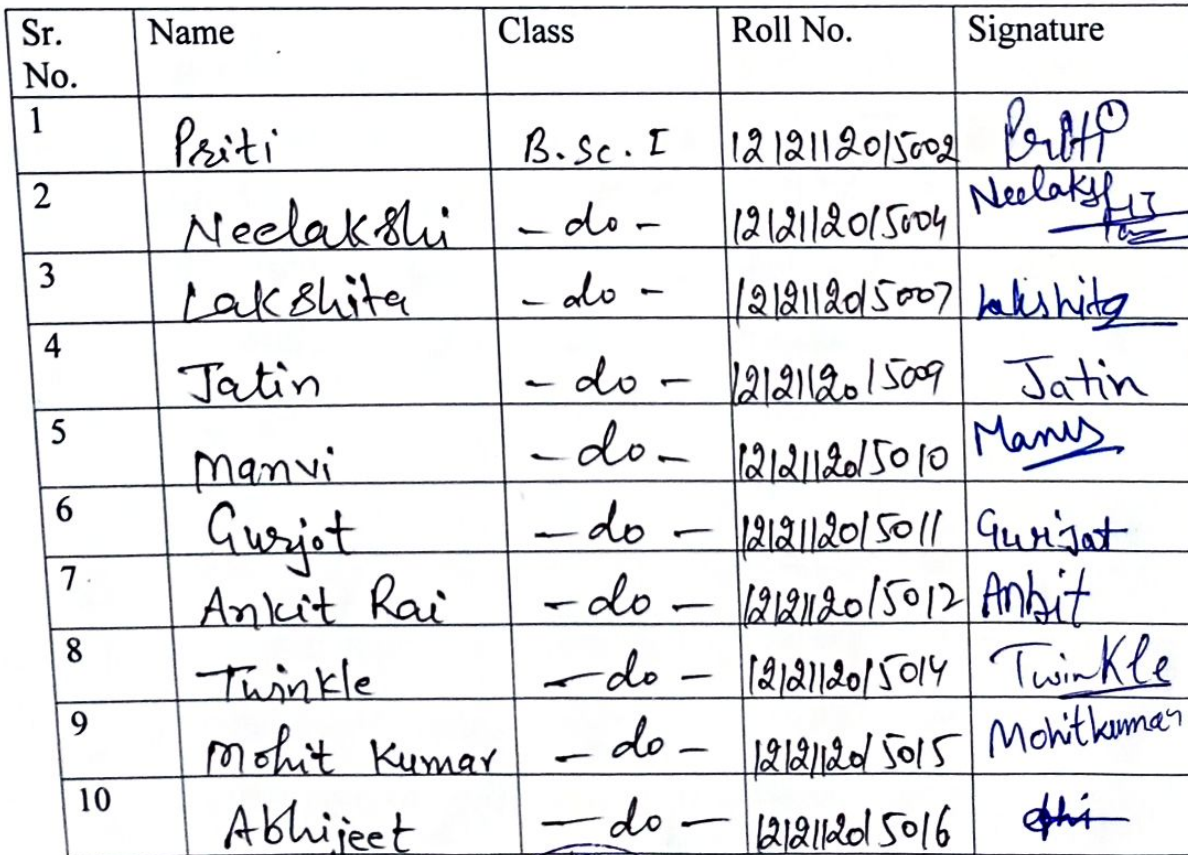 Sr. No. Name Class Roll No. Signature
1 Priti B.Sc. I 1212112015002 Priti
2 Neelakshi - do - 1212112015004 Neelakshi
3 Lakshita - do - 1212112015007 Lakshita
4 Jatin - do - 1212112015009 Jatin
5 Manvi - do - 1212112015010 Manvi
6 Gurjot - do - 1212112015011 Gurjot
7 Ankit Rai - do - 1212112015012 Ankit
8 Twinkle - do - 1212112015014 Twinkle
9 Mohit Kumar - do - 1212112015015 Mohit kumar
10 Abhijeet - do - 1212112015016